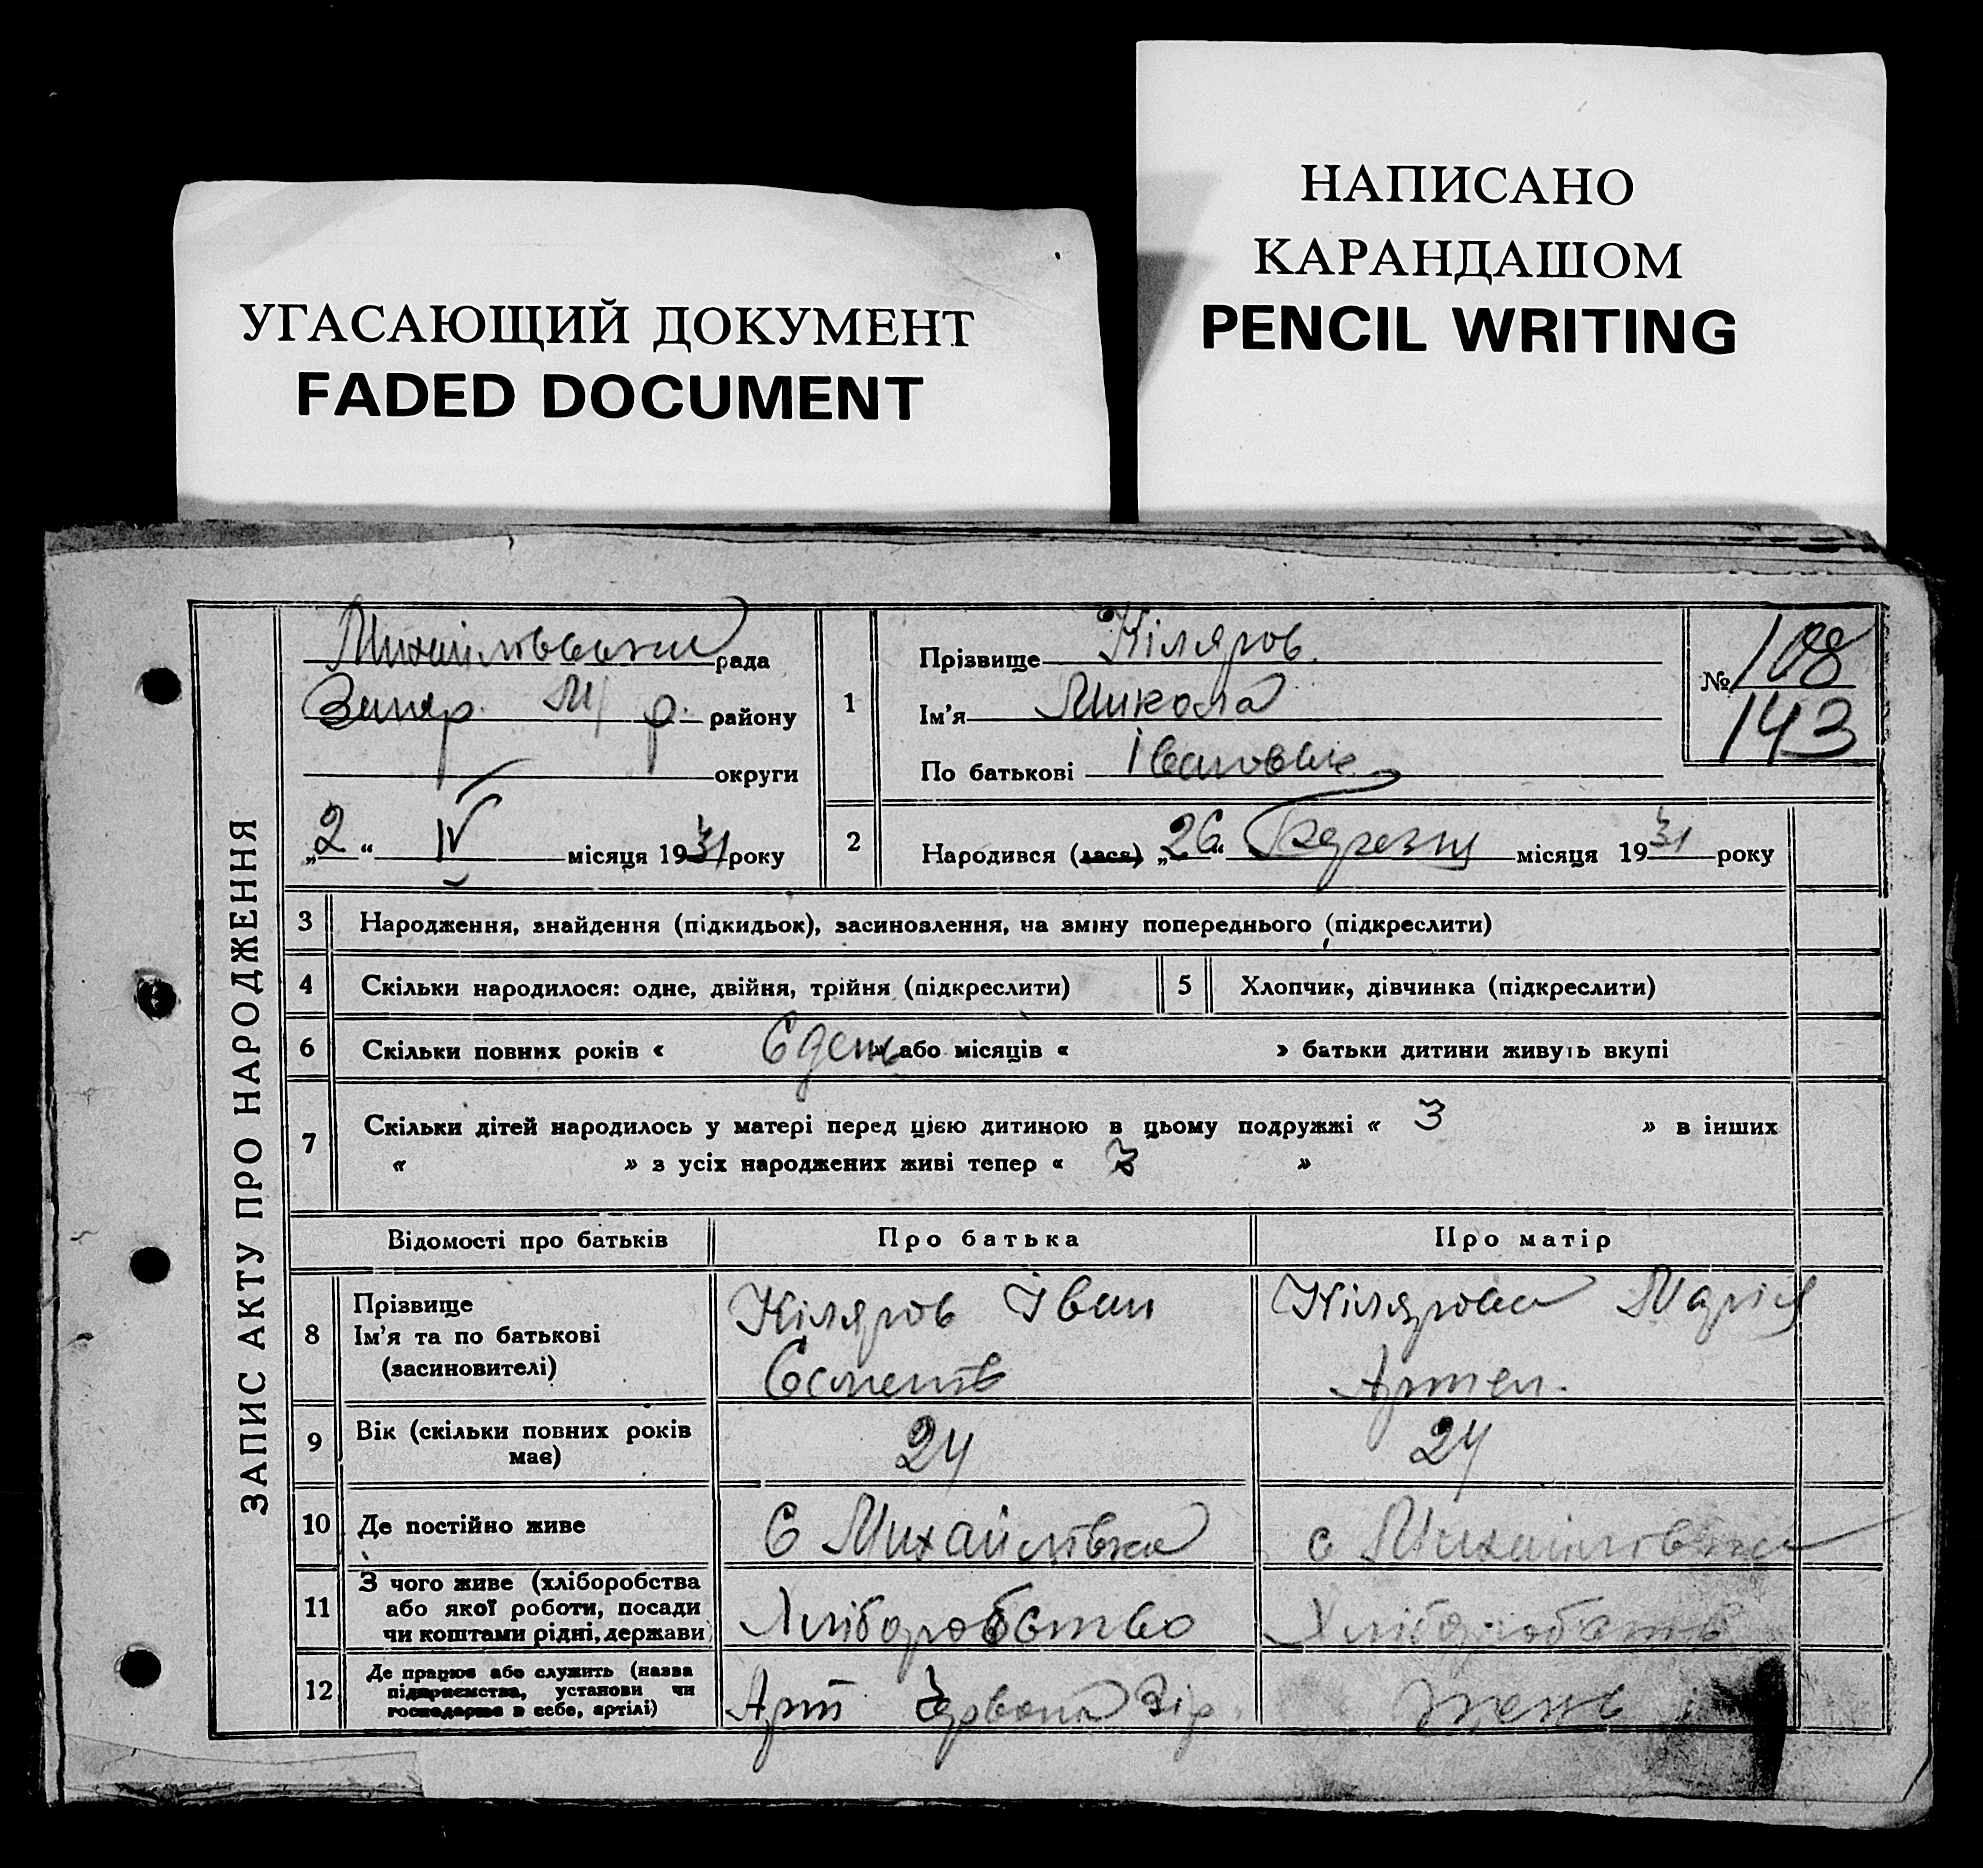 НАПИСАНО
КАРАНДАШОМ
PENCIL WRITING
УГАСАЮЩИЙ ДОКУМЕНТ
FADED DOCUMENT
ЗАПИС АКТУ ПРО НАРОДЖЕННЯ
Михайлівська рада
району
округи
„2“ IV місяця 1931 року
1
Прізвище Кіляров.
Ім'я Микола
По батькові Іванович
№ 108
143
2
Народився (лася) „26“ Березня місяця 1931 року
3 Народження, знайдення (підкидьок), засиновлення, на зміну попереднього (підкреслити)
4 Скільки народилося: одне, двійня, трійня (підкреслити)
5 Хлопчик, дівчинка (підкреслити)
6 Скільки повних років « » або місяців « » батьки дитини живуть вкупі
7 Скільки дітей народилось у матері перед цією дитиною в цьому подружжі « 3 » в інших
« » з усіх народжених живі тепер « 3 »
Відомості про батьків
Про батька
Про матір
8
Прізвище
Ім'я та по батькові
(засиновителі)
Кіляров Іван
Кілярова Марія
Артем.
9
Вік (скільки повних років
має)
24
24
10 Де постійно живе
С Михайлівка
с Михайлівка
11
З чого живе (хліборобства
або якої роботи, посади
чи коштами рідні, держави)
Хліборобство
Хліборобство
12
Де працює або служить (назва
підприємства, установи чи
господарює в себе, артілі)
Арт Червона Зір.